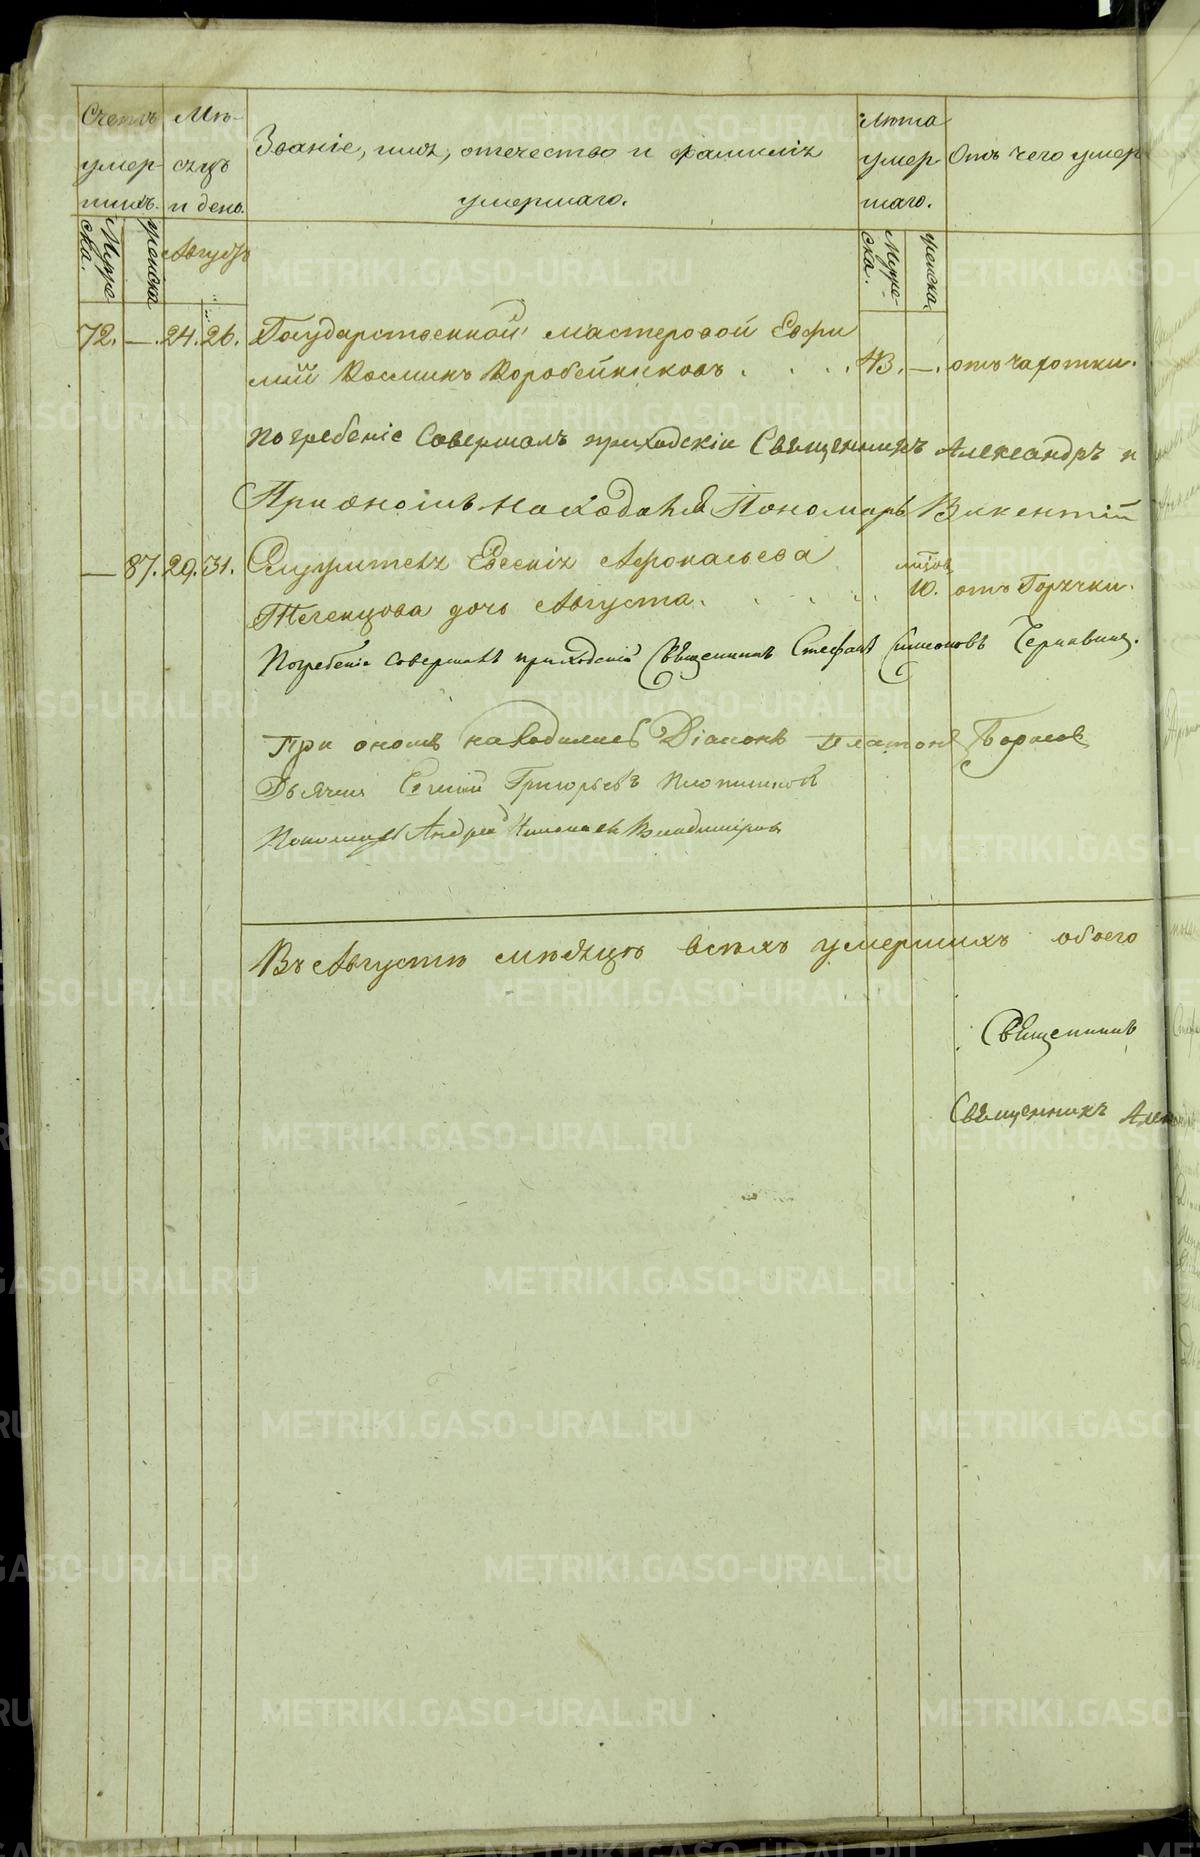 Счетъ умер- шихъ.
Мѣ- сяцъ и день.
Званіе, имя, отечество и фамилія
умершаго.
Лѣта умер шаго.
Отъ чего умер
Муже- ска.
женска
Августъ
Муже- ска.
женска
72. — 24. 26. Государственной мастеровой Евфи
мій Косминъ Коробейниковъ . . . . 43. —. отъ чахотки.
Погребеніе Совершалъ приходскій Священникъ Александръ
При ономъ находился Пономарь Викентій
— 87. 29. 31. Служителя Евсевія Афонасьева
Тегенцова дочь Августа. 10. отъ Горячки.
Погребеніе совершалъ приходскій Священникъ Стефанъ Симеоновъ Чернавинъ.
При ономъ находились Діаконъ Платонъ
Дьячекъ Григорьевъ Плотниковъ
Пономарь Андрей Николаевъ Владиміровъ
Въ Августѣ мѣсяцѣ всѣхъ умершихъ обоего
Священникъ
Священникъ
METRIKI.GASO-URAL.RU